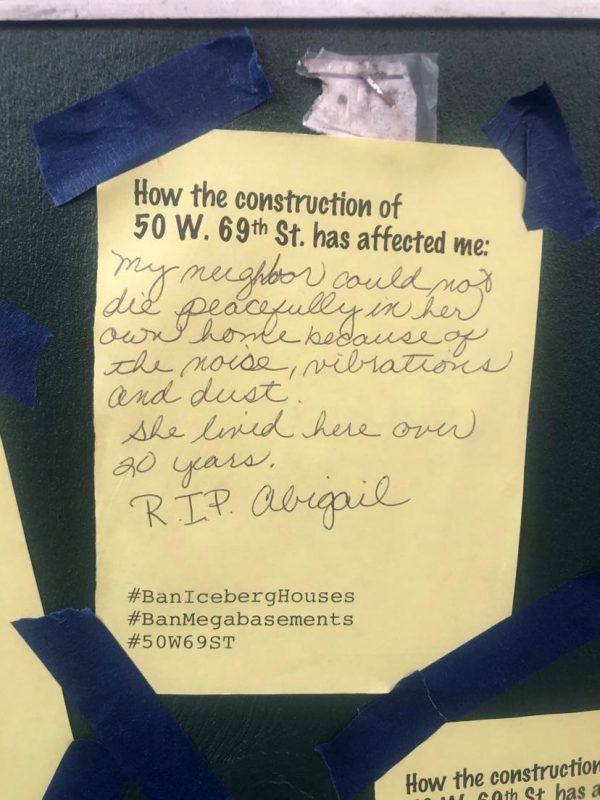 How the construction of
50 W. 69th St. has affected me:
My neighbor could not
die peacefully in her
own home because of
the noise, vibrations
and dust.
She lived here over
20 years.
R.I.P. Abigail
#BanIcebergHouses
#BanMegabasements
#50W69ST
How the construction
W. 69th St. has a